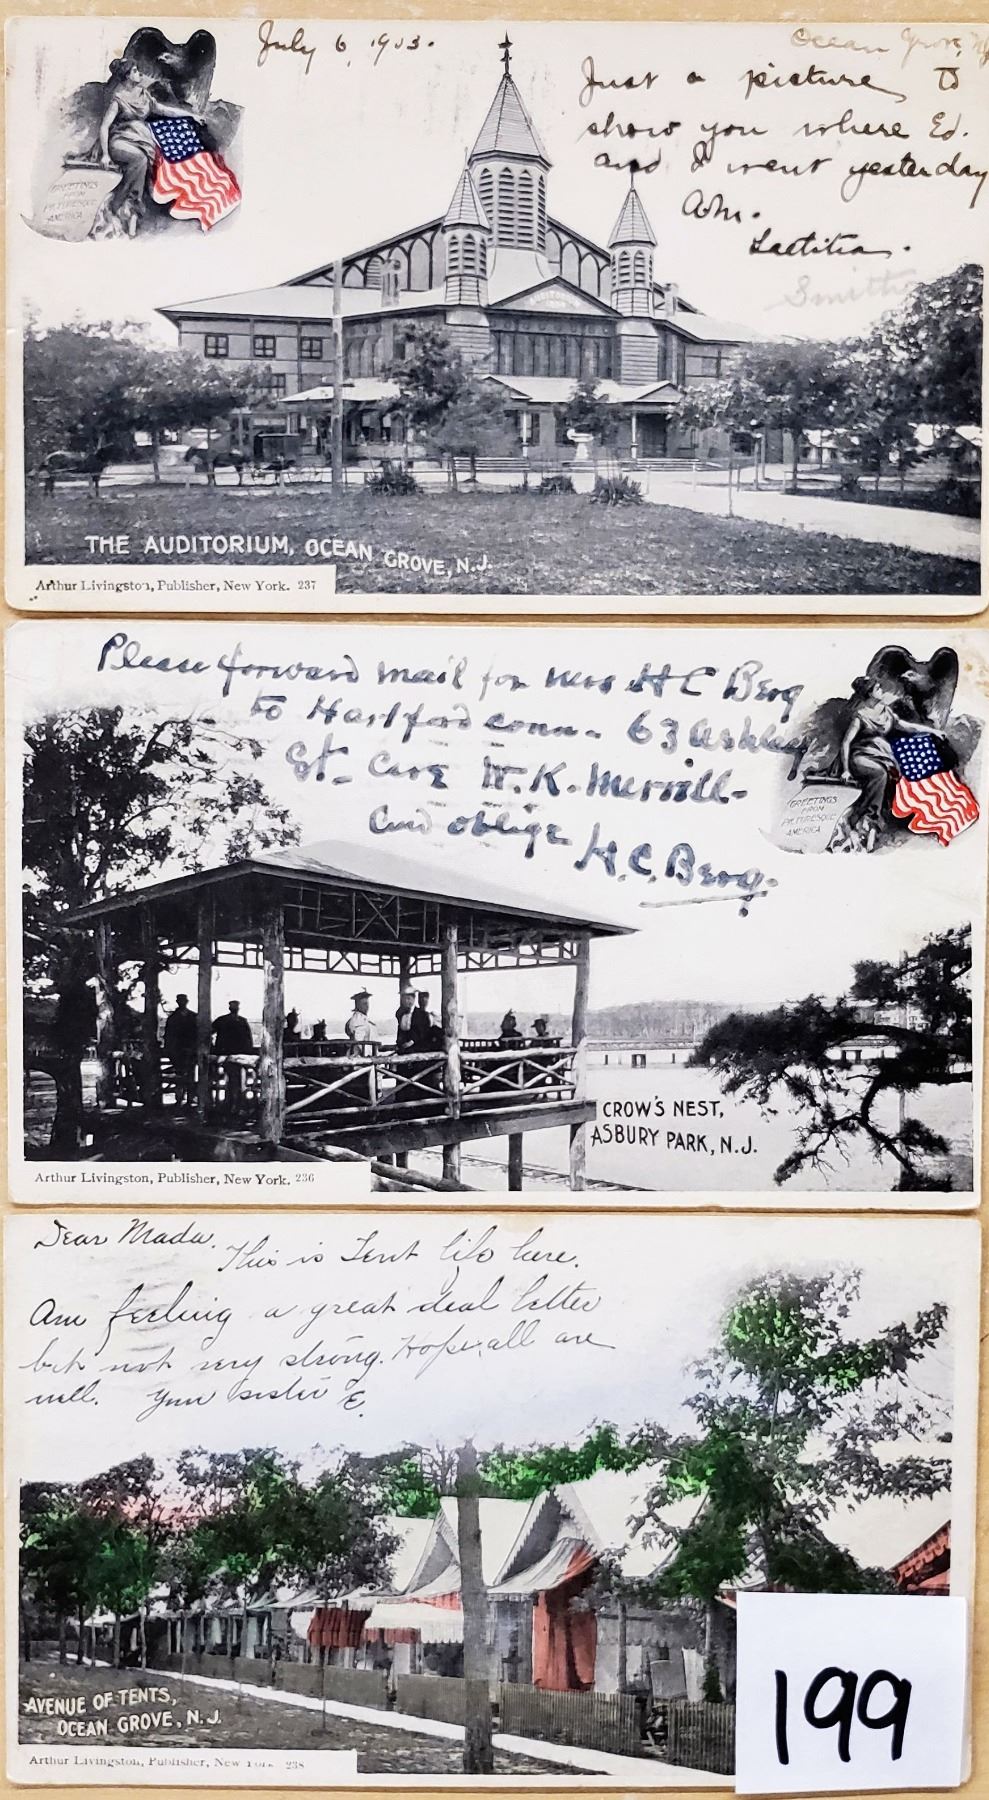 July 6, 1903.
Ocean Grove, NJ
Just a picture to
show you where Ed.
and I went yesterday
Laetitia.
Smith
GREETINGS
FROM
PICTURESQUE
AMERICA
AUDITORIUM
THE AUDITORIUM, OCEAN GROVE, N.J.
Arthur Livingston, Publisher, New York. 237
Please forward mail for Mrs H C Berg
to Hartford Conn. 63 Ashley
St. Care W. K. Merrill-
and oblige H. C. Berg.
GREETINGS
FROM
PICTURESQUE
AMERICA
CROW'S NEST,
ASBURY PARK, N.J.
Arthur Livingston, Publisher, New York. 236
Dear Mada.
This is Tent life here.
Am feeling a great deal better
but not very strong. Hope all are
well. Your sister E.
AVENUE OF TENTS,
OCEAN GROVE, N.J.
Arthur Livingston, Publisher, New York. 238
199